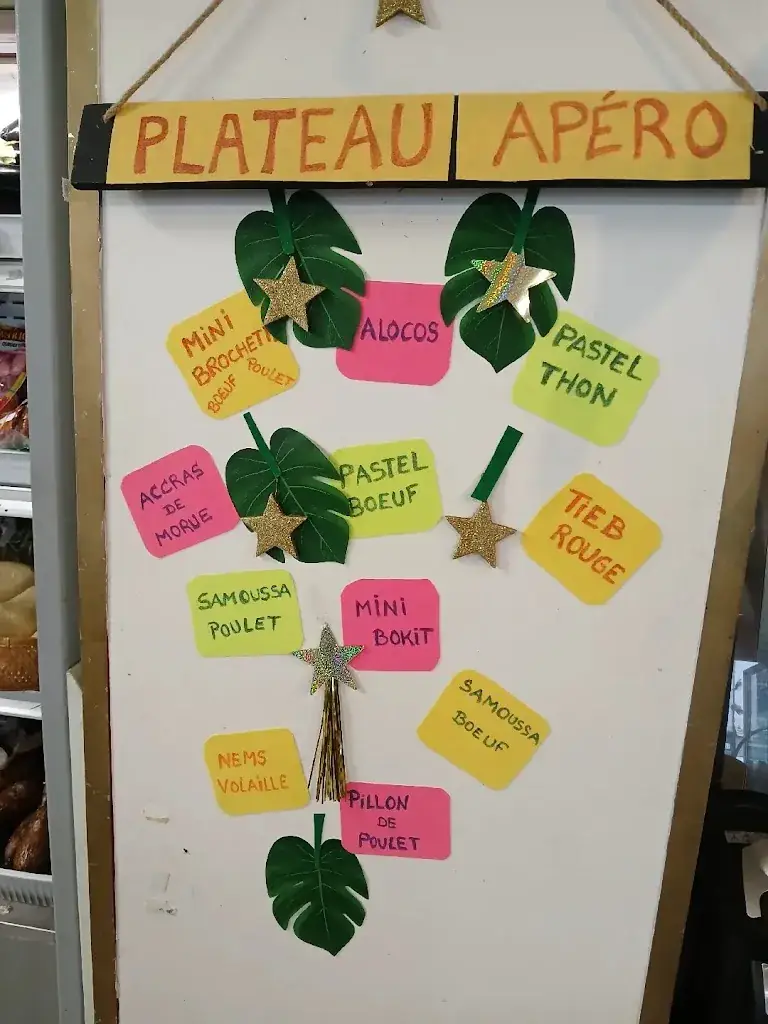 PLATEAU APÉRO
MiNi
BROCHETTE
BOEUF POULET
ALOCOS
PASTEL
THON
ACCRAS
DE
MORUE
PASTEL
BOEUF
TiEB
ROUGE
SAMOUSSA
POULET
MiNi
BOKiT
SAMOUSSA
BOEUF
NEMS
VOLAiLLE
PiLLON
DE
POULET